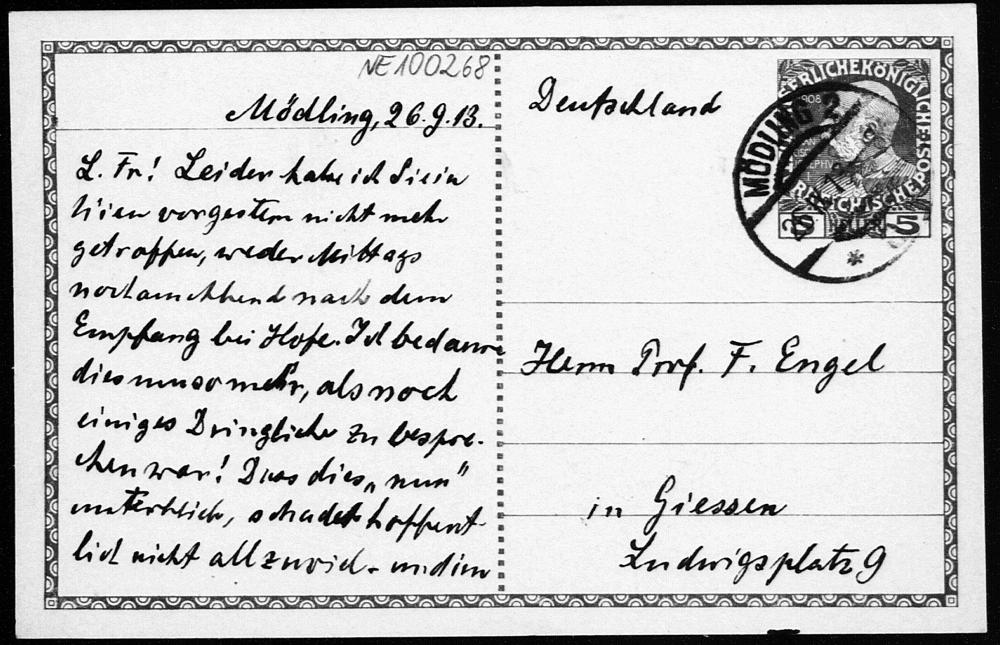 NE100268
Mödling, 26.9.13.
L. Fr.! Leider habe ich Sie in
Wien vorgestern nicht mehr
getroffen, weder Mittags
noch am Abend nach dem
Empfang bei Hofe. Ich bedaure
dies umso mehr, als noch
einiges Dringliche zu bespre-
chen war! Dass dies „nun“
unterblieb, schadet hoffent-
lich nicht allzuviel - und im
Deutschland
KÖNIGLICHE
1908
5 5
MÖDLING 2
Herrn Prof. F. Engel
in Giessen
Ludwigsplatz 9